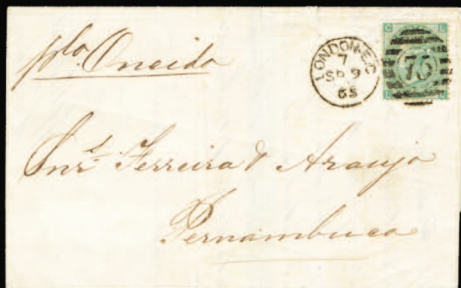 pla. Oneida
LONDON.E.C
7
SP 9
65
75
Snrs. Ferreira & Araujo
Pernambuco